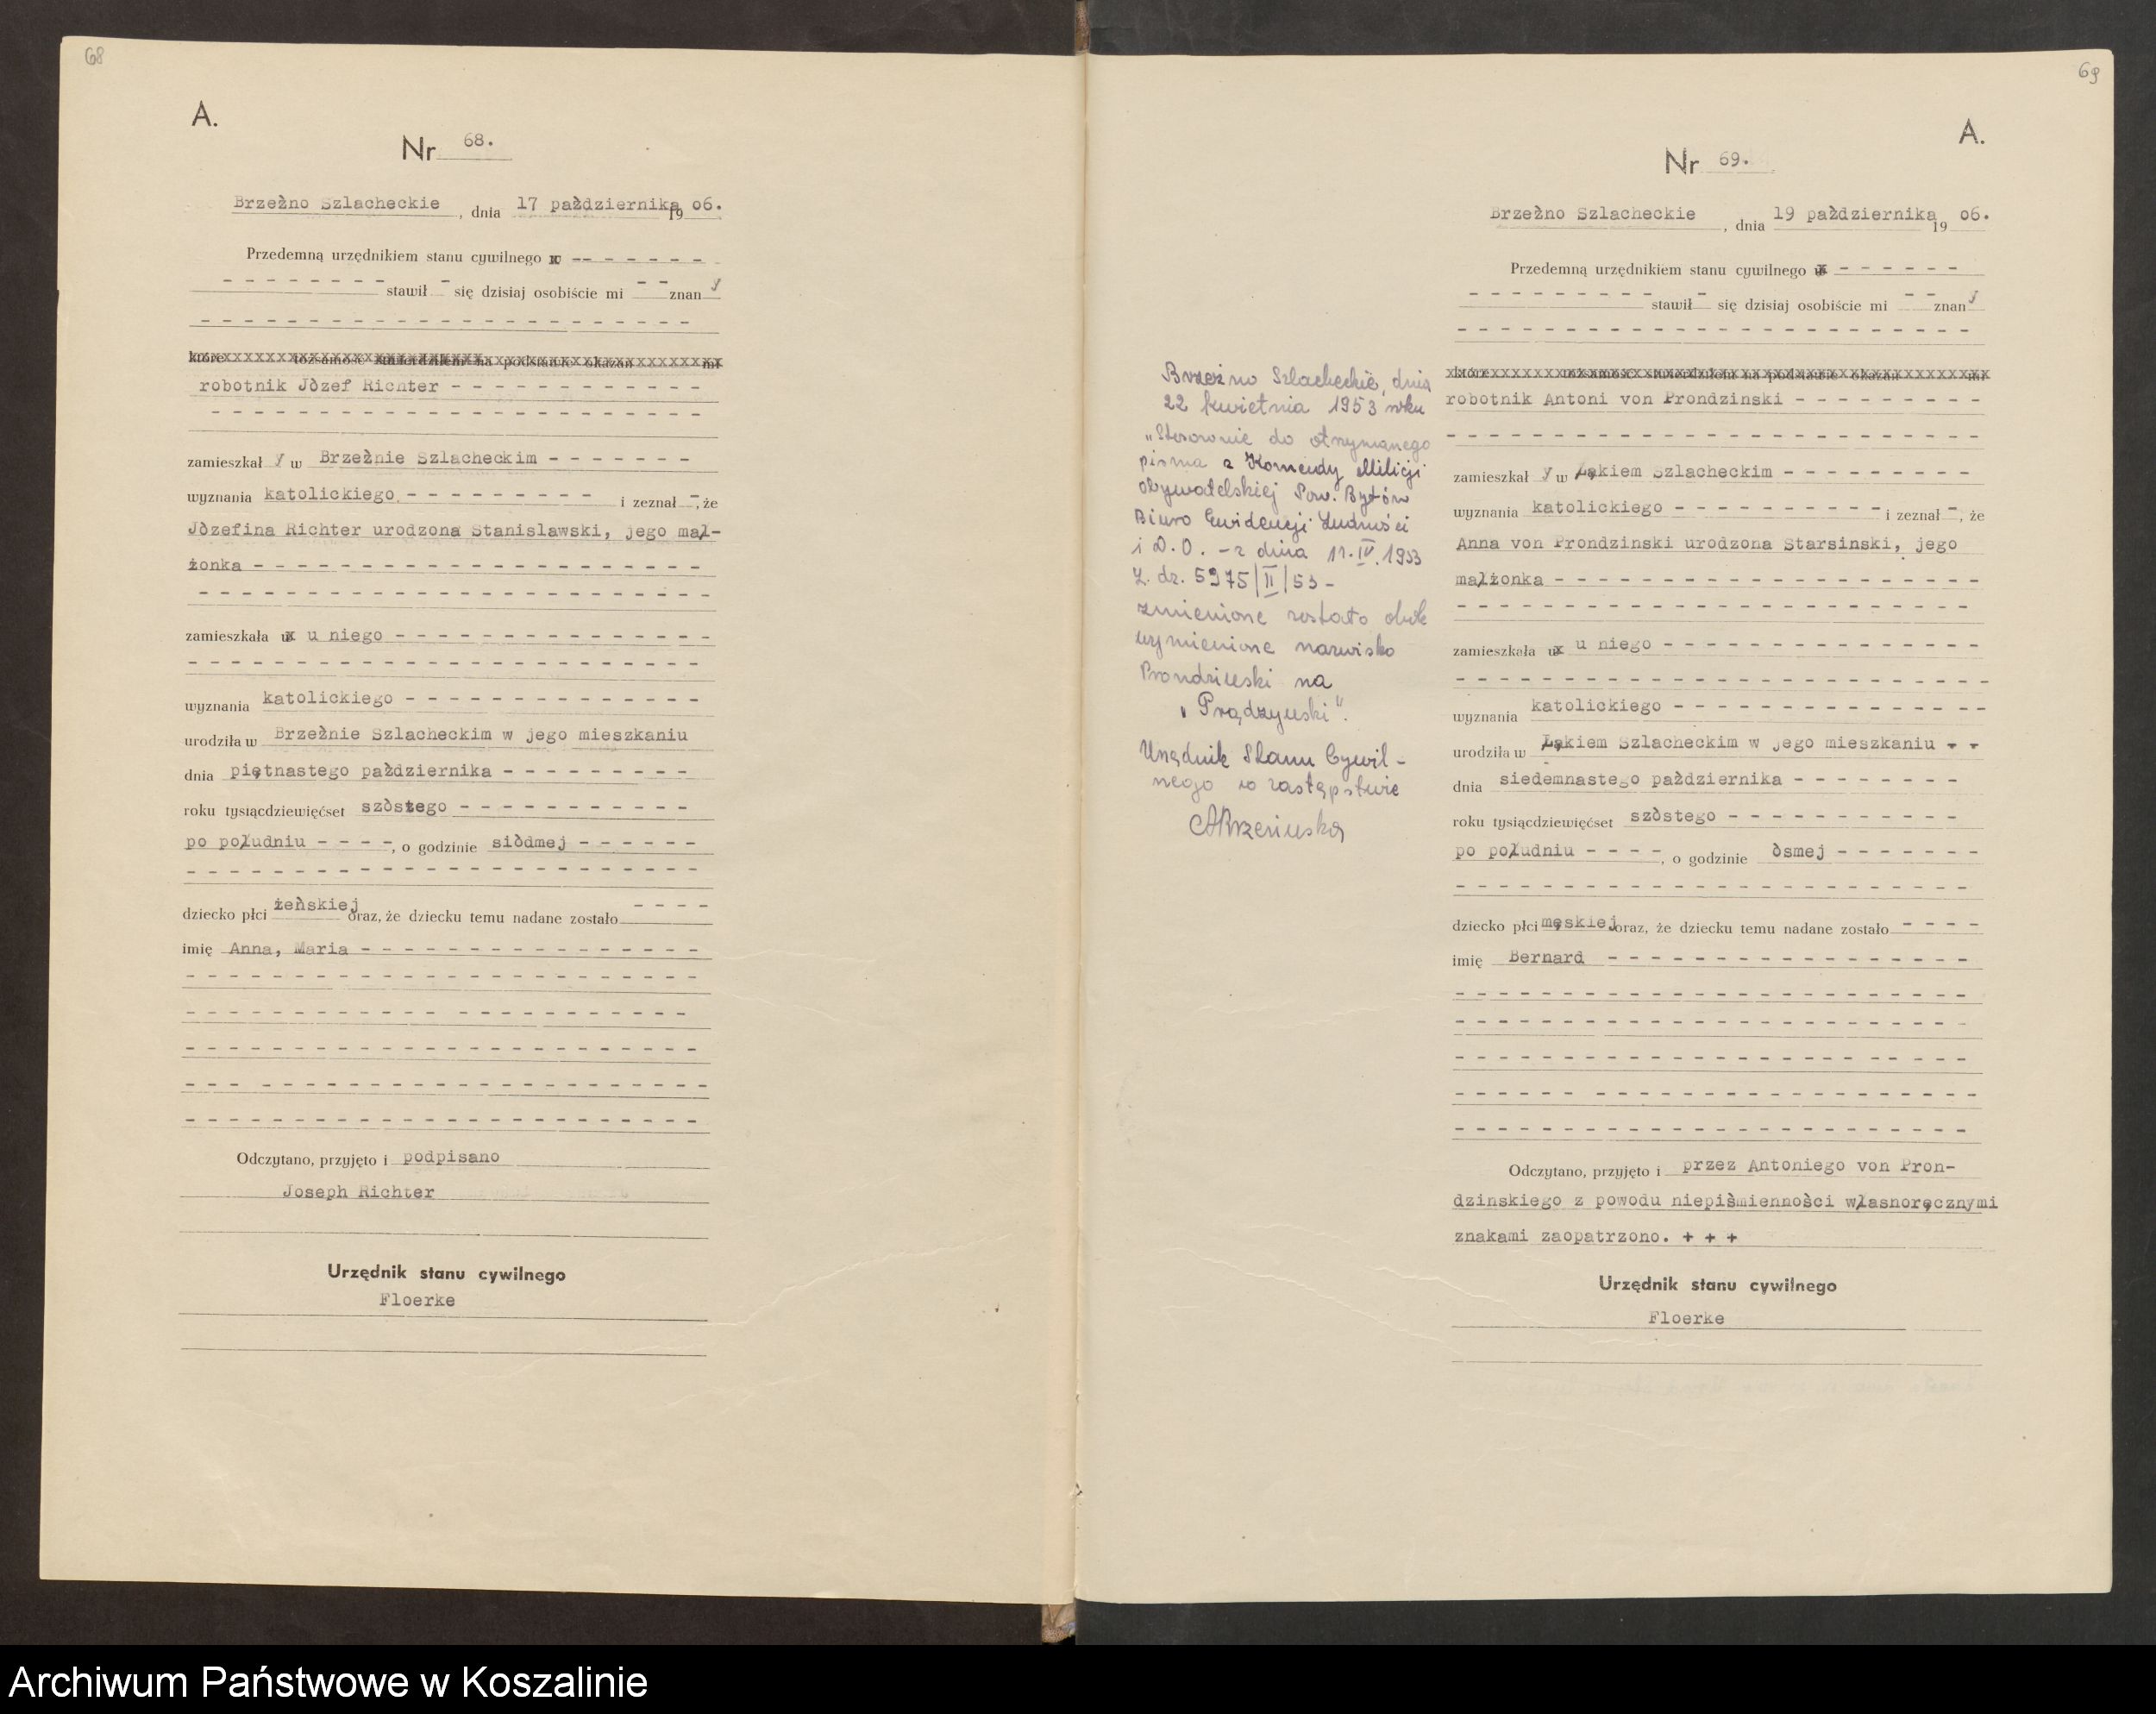 68
A.
Nr 68.
Brzeżno Szlacheckie, dnia 17 pażdziernika 1906.
Przedemną urzędnikiem stanu cywilnego w - - - - - - -
- - - - - - - - stawił - się dzisiaj osobiście mi - - znany
- - - - - - - - - - - - - - - - - - - - - - -
które tożsamość stwierdziłem na podstawie okazan mi
robotnik Jòzef Richter - - - - - - - - - - - -
- - - - - - - - - - - - - - - - - - - - - - -
zamieszkał y w Brzeżnie Szlacheckim - - - - - - -
wyznania katolickiego - - - - - - - - - i zeznał -, że
Jòzefina Richter urodzona Stanislawski, jego mał-
żonka - - - - - - - - - - - - - - - - - - - - -
- - - - - - - - - - - - - - - - - - - - - - - -
zamieszkała w u niego - - - - - - - - - - - - - - -
- - - - - - - - - - - - - - - - - - - - - - - -
wyznania katolickiego - - - - - - - - - - - - - -
urodziła w Brzeżnie Szlacheckim w jego mieszkaniu
dnia piętnastego pażdziernika - - - - - - - - -
roku tysiącdziewięćset szòstego - - - - - - - - - - - -
po południu - - - -, o godzinie siòdmej - - - - - -
- - - - - - - - - - - - - - - - - - - - - - - -
dziecko płci żeǹskiej oraz, że dziecku temu nadane zostało - - - -
imię Anna, Maria - - - - - - - - - - - - - - - -
- - - - - - - - - - - - - - - - - - - - - - - -
- - - - - - - - - - - - - - - - - - - - - - -
- - - - - - - - - - - - - - - - - - - - - - - -
- - - - - - - - - - - - - - - - - - - - - - - -
- - - - - - - - - - - - - - - - - - - - - - - -
Odczytano, przyjęto i podpisano
Joseph Richter
Urzędnik stanu cywilnego
Floerke
69
A.
Nr 69.
Brzeżno Szlacheckie, dnia 19 pażdziernika 1906.
Przedemną urzędnikiem stanu cywilnego w - - - - - -
- - - - - - - - - stawił - się dzisiaj osobiście mi - - znany
- - - - - - - - - - - - - - - - - - - - - - - -
które tożsamość stwierdziłem na podstawie okazan mi
robotnik Antoni von Prondzinski - - - - - - - - -
- - - - - - - - - - - - - - - - - - - - - - - - -
zamieszkał y w Łąkiem Szlacheckim - - - - - - - - -
wyznania katolickiego - - - - - - - - - - i zeznał -, że
Anna von Prondzinski urodzona Starsinski, jego
małżonka - - - - - - - - - - - - - - - - - - - -
- - - - - - - - - - - - - - - - - - - - - - - -
zamieszkała w u niego - - - - - - - - - - - - - - -
- - - - - - - - - - - - - - - - - - - - - - - - -
wyznania katolickiego - - - - - - - - - - - - - - -
urodziła w Łąkiem Szlacheckim w jego mieszkaniu - -
dnia siedemnastego pażdziernika - - - - - - - -
roku tysiącdziewięćset szòstego - - - - - - - - - - - -
po południu - - - -, o godzinie òsmej - - - - - - -
- - - - - - - - - - - - - - - - - - - - - - - -
dziecko płci męskiej oraz, że dziecku temu nadane zostało - - - -
imię Bernard - - - - - - - - - - - - - - - - -
- - - - - - - - - - - - - - - - - - - - - - - -
- - - - - - - - - - - - - - - - - - - - - - - -
- - - - - - - - - - - - - - - - - - - - - - - -
- - - - - - - - - - - - - - - - - - - - - - - -
- - - - - - - - - - - - - - - - - - - - - - - -
Odczytano, przyjęto i przez Antoniego von Pron-
dzinskiego z powodu niepiśmienności własnoręcznymi
znakami zaopatrzono. + + +
Urzędnik stanu cywilnego
Floerke
Brzeźno Szlacheckie, dnia
22 kwietnia 1953 roku
"Stosownie do otrzymanego
pisma z Komendy Milicji
Obywatelskiej Pow. Bytów
Biuro Ewidencji Ludności
i D.O. - z dnia 11.IV.1953
L. dz. 5975/II/53 -
zmienione zostało obok
wymienione nazwisko
Prondzinski na
"Prądzyński".
Urzędnik Stanu Cywil-
nego w zastępstwie
ABrzezińska
Archiwum Państwowe w Koszalinie